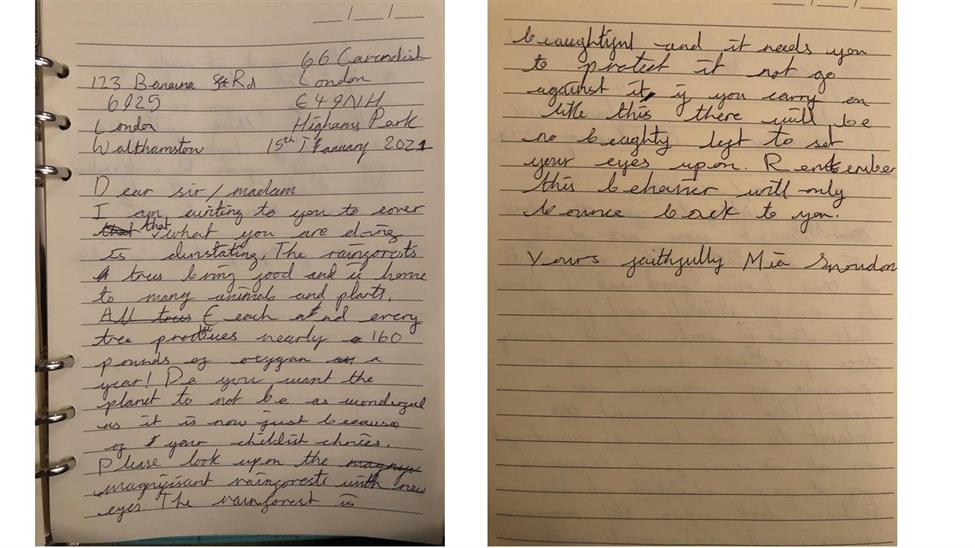 66 Cavendish
123 Banana St Rd London
E4 9NH
London Highams Park
Walthamstow 15th January 2021
Dear sir/madam
I am writing to you to cover
that that what you are doing
is dinstating. The raingorests
trees bring good and is home
to many animals and plants.
All trees Each and every
tree produces nearly 160
pounds of oxygan a
year! Do you want the
planet to not be as wonderful
as it is now just because
of your childist choices.
Please look upon the
magnifisant raingorests with new
eyes The raingorest is
beaughtiful and it needs you
to protect it not go
against it, if you carry on
like this there will be
no beaghty left to set
your eyes upon. Remember
this behavier will only
bounce back to you.
Yours faithfully Mia Snowdon